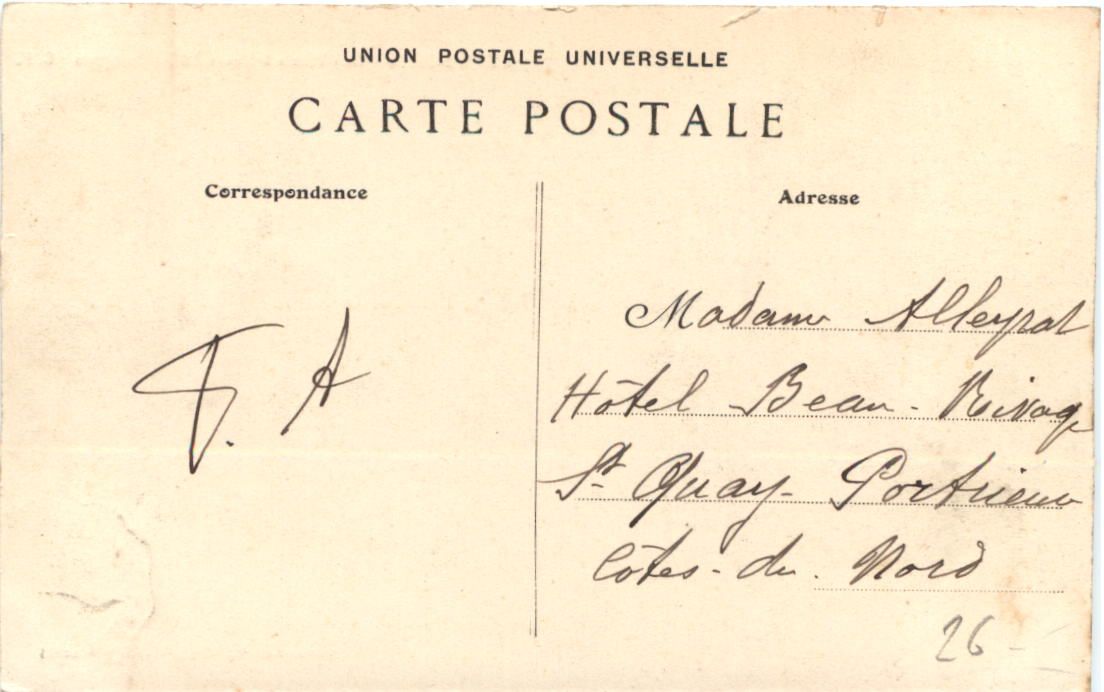 UNION POSTALE UNIVERSELLE
CARTE POSTALE
Correspondance
Adresse
F. A
Madame Alleyrat
Hôtel Beau-Rivage
St Quay-Portrieux
Côtes-du-Nord
26-